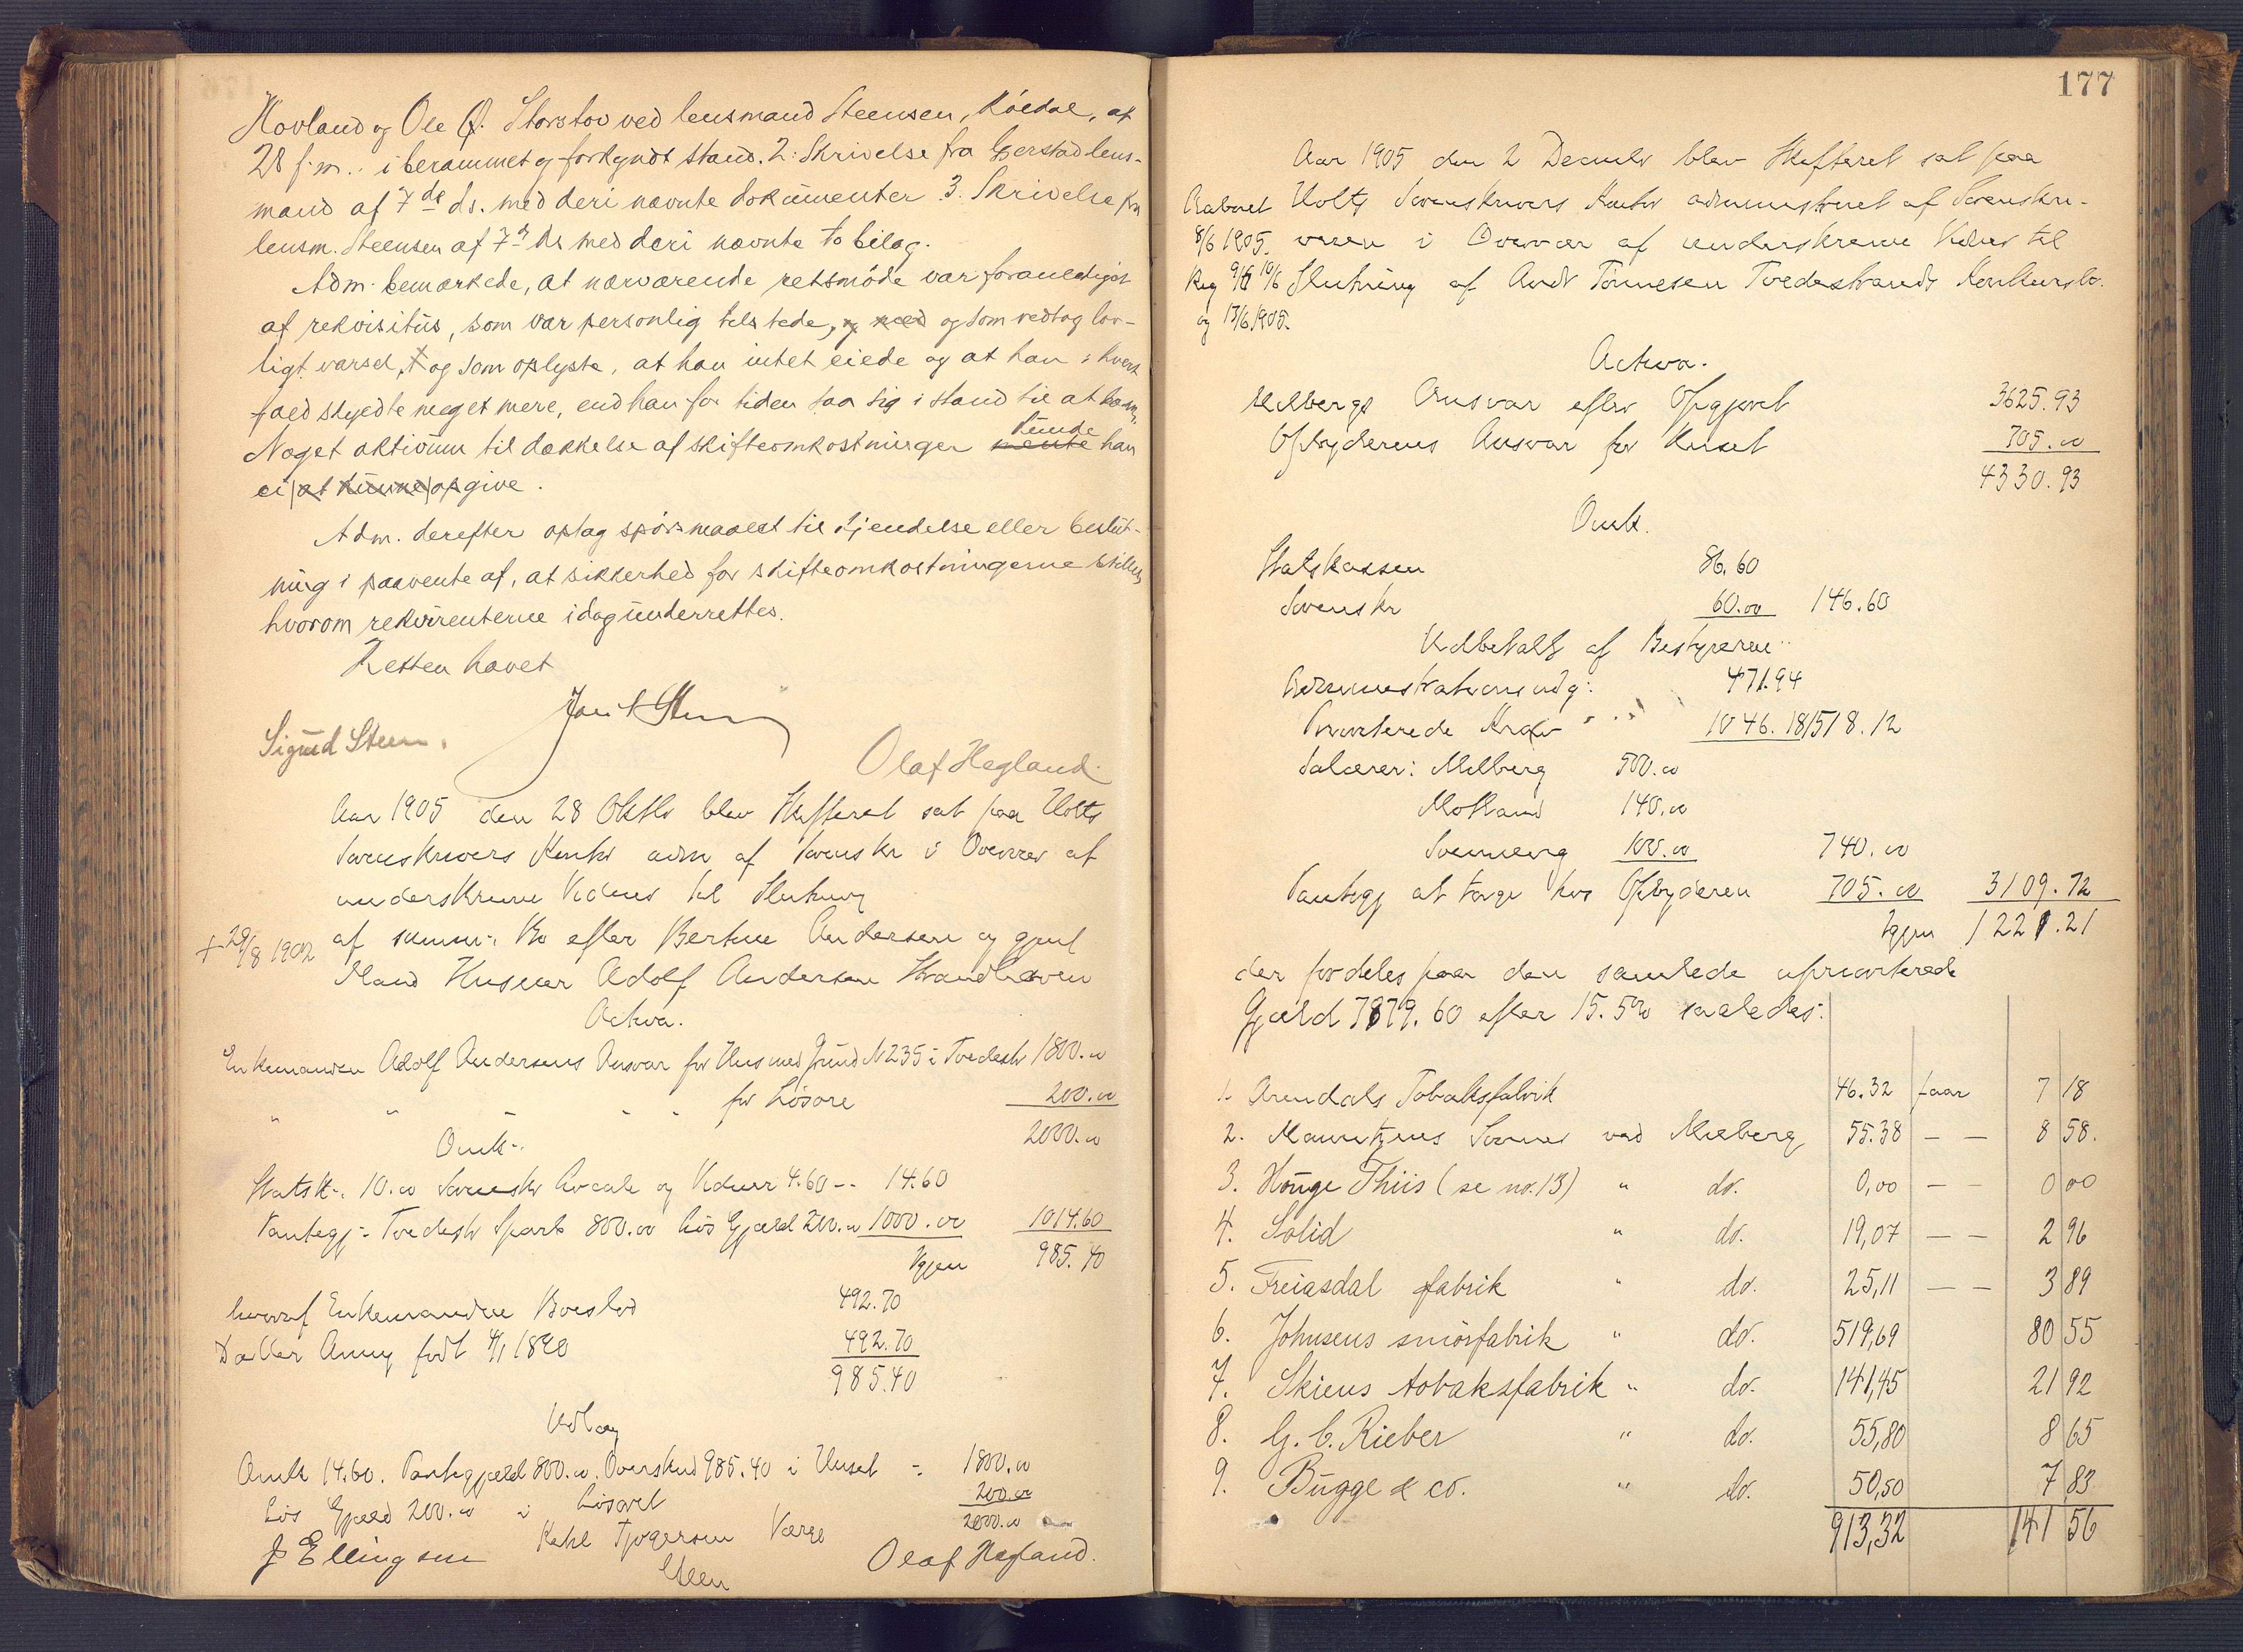 Hovland og Ole Ø. Storstov ved lensmand Steensen, Kóldal, at
28 f.m. i berammet og forkyndt stand. 2: Skrivelse fra Gjerstad lens-
mand af 7de ds. med deri nævnte dokumenter 3. Skrivelse fra
lensm. Steensen af 7de ds med deri nævnte to bilag.
Adm. bemærkede, at nærværende retsmöde var foranlediget
af rekvisitus, som var personlig tilstede, og med og som vedtog lov-
ligt varsel, og som oplyste, at han intet eiede og at han i hvert
fald skyldte meget mere, end han for tiden saa sig i stand til at
Noget aktivum til dækkelse af skifteomkostninger mente kunde han
ei at kunne opgive.
Adm. derefter optog spörsmaalet til kjendelse eller beslut-
ning i paavente af, at sikkerhed for skifteomkostningerne stilles,
hvorom rekvirenterne idag underrettes.
Retten hævet
Sigurd Steen.
Olaf Hegland.
Aar 1905 den 28 Oktbr blev Skifteret sat paa Holts
Sorenskrivers Kontor adm af Sorenskr i Overvær af
underskrevne Vidner til Slutning
† 29/8 1902 af samm. Bo efter Bertine Andersen og gjenl
Mand Huseier Adolf Andersen Strandhaven
Activa.
Enkemanden Adolf Andersens Ansvar for Hus med Grund N 235 i Tvedestr 1800.00
" " " " " for Lösöre 200.00
2000.00
Omk.
Statsk. 10.00 Sorenskr og Vidner 4.60 -- 14.60
Pantegj. Tvedestr Spareb 800.00 Lös Gjæld 200.00 1000.00 1014.60
Igjen 985.40
hvoraf Enkemanden Boeslod 492.70
Datter Anny födt 4/1 1890 492.70
985.40
Udlæg
Omk 14.60. Pantegjæld 800.00. Overskud 985.40 i Huset = 1800.00
Lös Gjæld 200.00 i Lösöret 200.00
2000.00
J Ellingsen Værge
Steen
Olaf Hegland.
177
Aar 1905 den 2 December blev Skifteret sat paa
Aabnet Holts Sorenskrivers Kontor administreret af Sorenskri-
8/6 1905. veren i Overvær af underskrevne Vidner til
Reg 9/6 10/6 Slutning af Andr Tönnesen Tvedestrands Konkursbo.
og 13/6 1905.
Activa.
Milbergs Ansvar efter Opgjöret 3625.93
Opbyderens Ansvar for Huset 705.00
4330.93
Omk.
Statskassen 86.60
Sorenskr 60.00 146.60
Udbetalt af Bestyreren
Administrationsudg: 471.94
Prioriterede Krav 1046.18 1518.12
Salærer: Milberg 500.00
Molland 140.00
Svenneveig 100.00 740.00
Pantegj at tage hos Opbyderen 705.00 3109.72
Igjen 1221.21
der fordeles paa den samlede uprioriterede
Gjæld 7879.60 efter 15.5% saaledes:
1. Arendals Tobaksfabrik 46.32 faar 7 18
2. Mauritzens Sönner ved Milberg 55.38 — — 8 58.
3. Houge Thiis (se no. 13) " do. 0,00 — — 0 00
4. Solid " do. 19,07 — — 2 96
5. Freiasdal fabrik " do. 25,11 — — 3 89
6. Johnsens smörfabrik " do. 519,69 80 55
7. Skiens tobaksfabrik " do. 141,45 21 92
8. G. C. Rieber " do. 55,80 8 65
9. Bugge & co. " do. 50,50 7 83
913,32 141 56